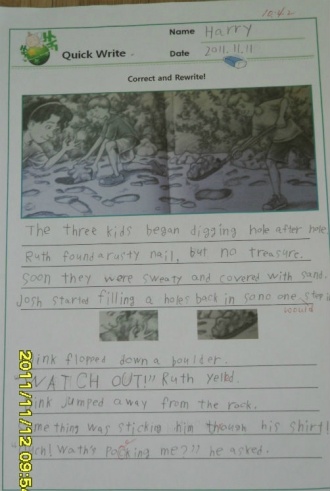 10:42
Name Harry
Quick Write
Date 2011.11.11
Correct and Rewrite!
The three kids began digging hole after hole.
Ruth found a rusty nail, but no treasure.
Soon they were sweaty and covered with sand.
Josh started filling a holes back in so no one step in
would
ink flopped down a boulder.
WATCH OUT!" Ruth yelled.
ink jumped away from the rock.
mething was sticking him though his shirt!
uch! Wath's pocking me?" he asked.
2011/11/12 09:54